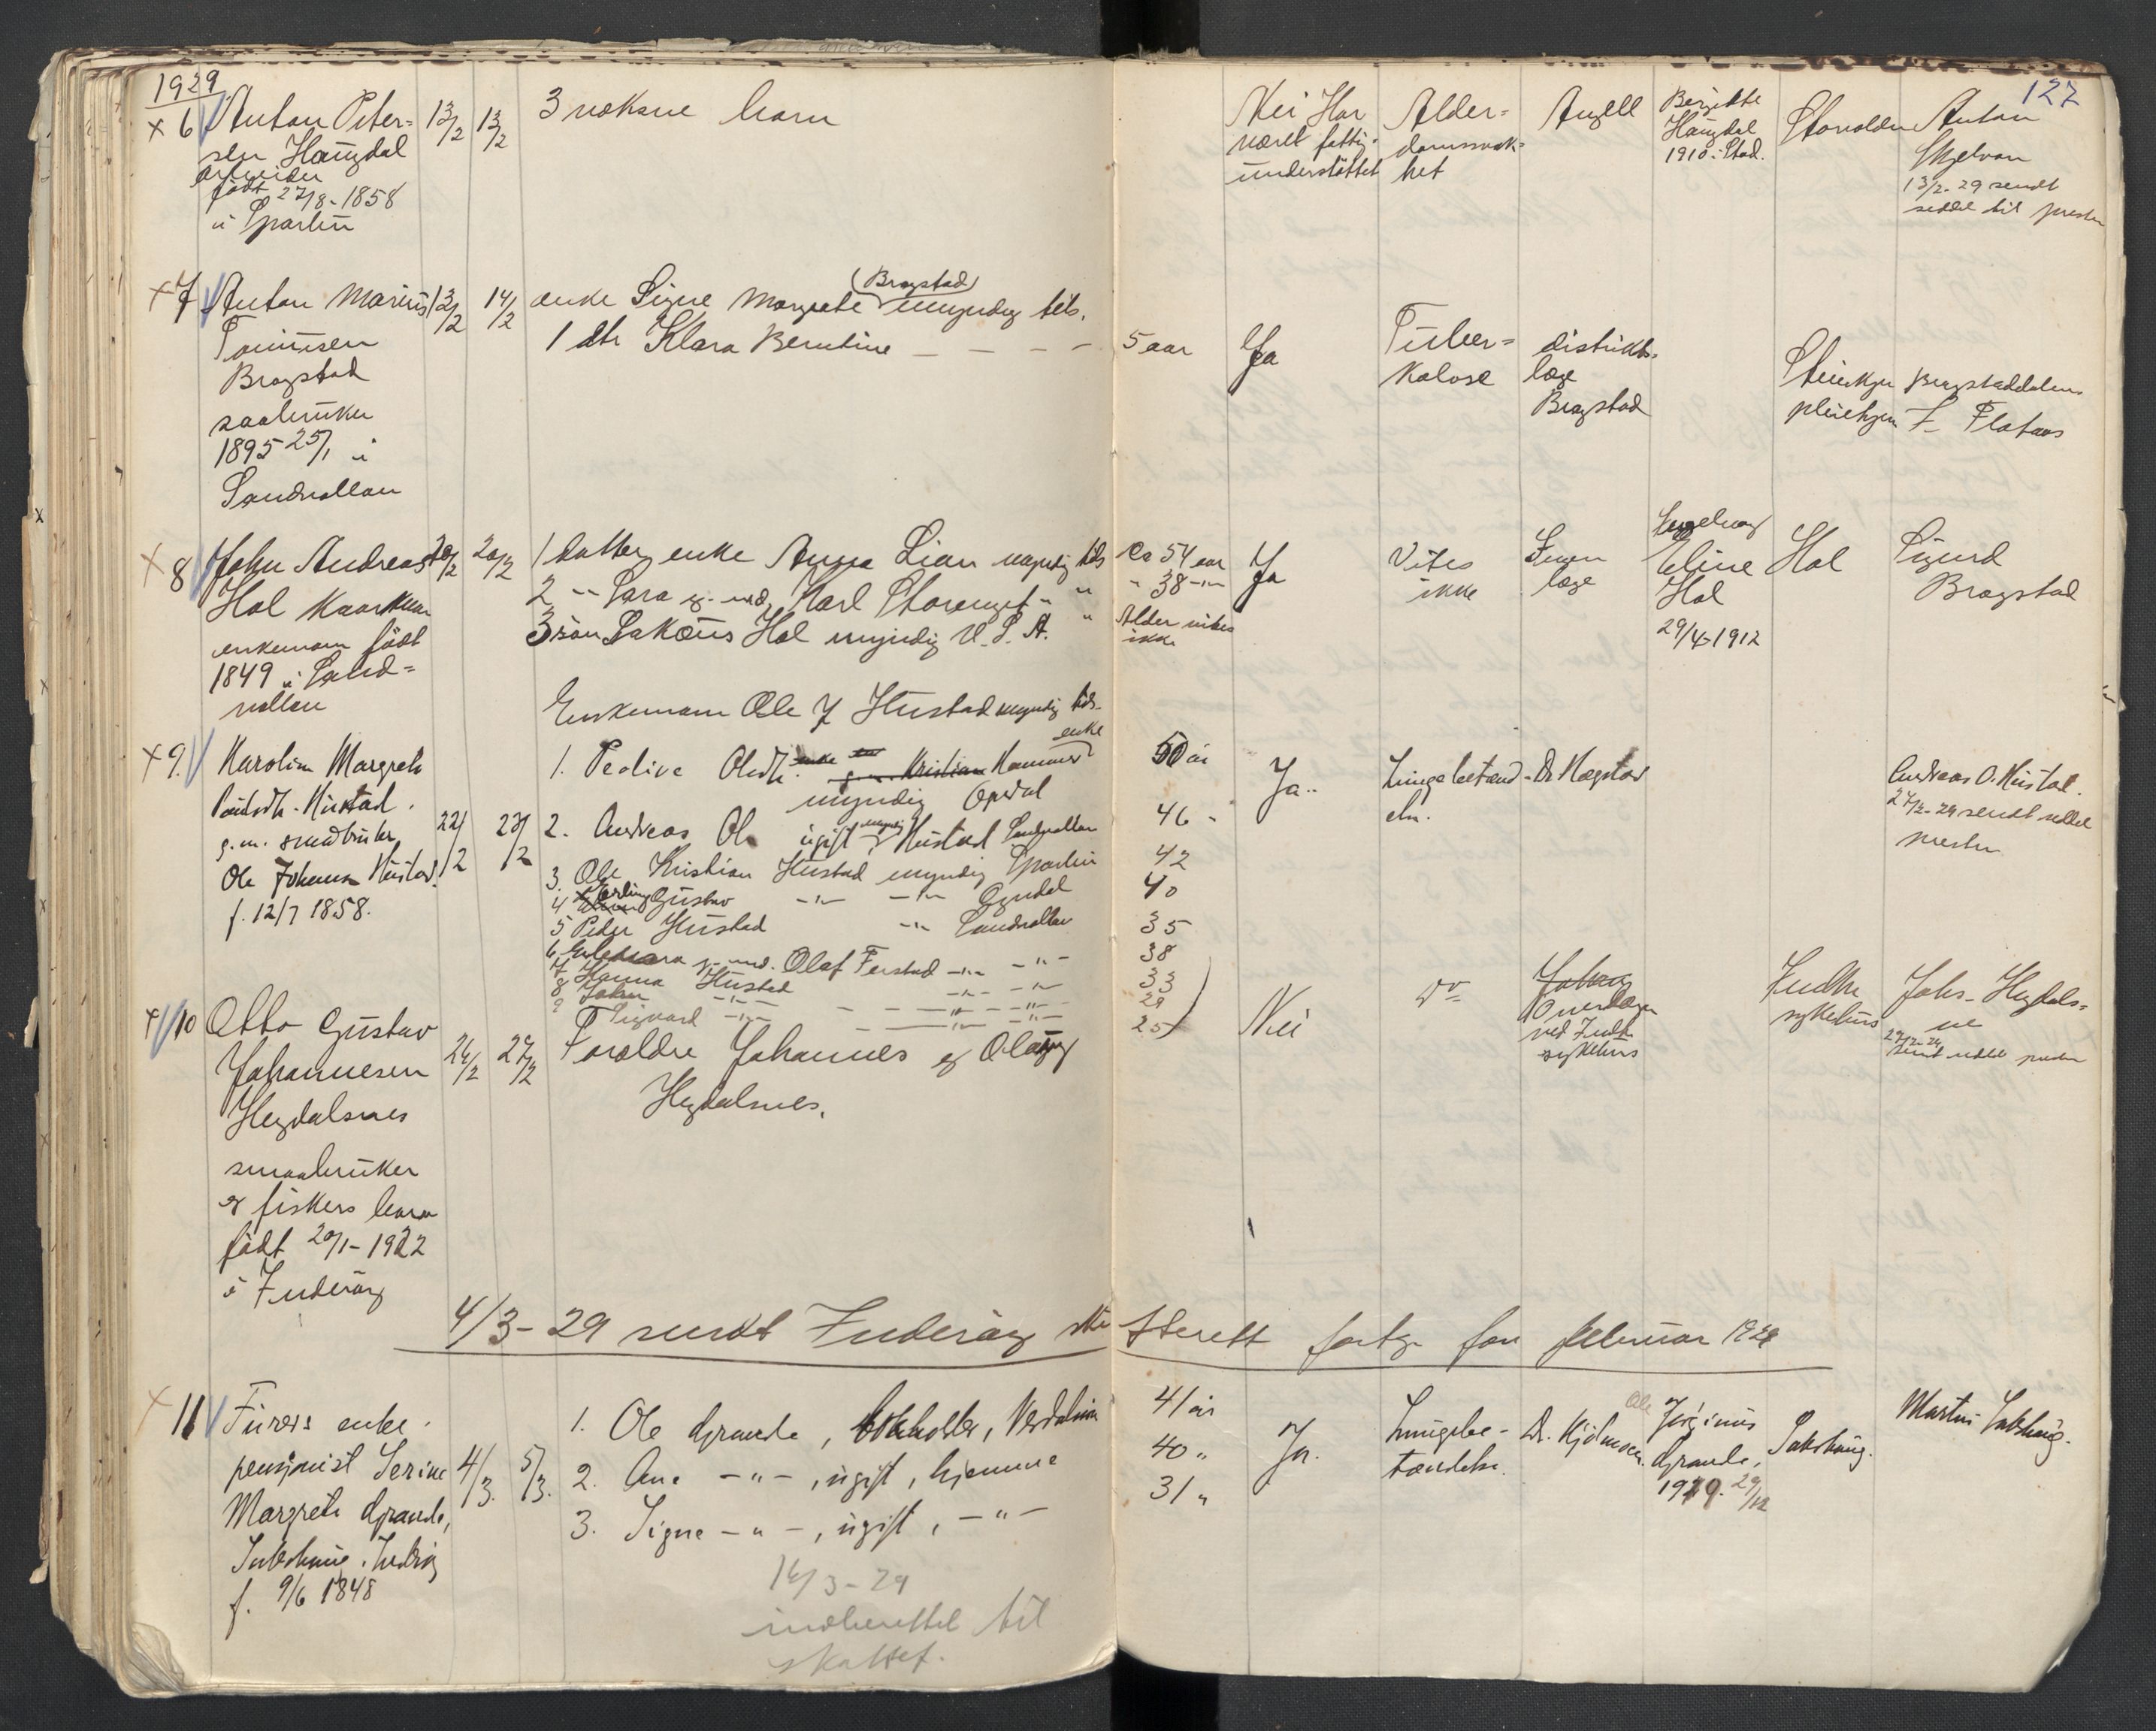 1929
127
× 6 Anton Peter=
sen Haugdal
Arbeider
født 27/8-1858
i Sparbu
13/2
13/2
3 voksne barn
Nei Har
været fattig-
understøttet
Alder=
domssvak=
het
Angell
Bergitte
Haugdal
1910 i Stod.
Anton
Skjelvan
13/2-29 sendt
seddel til presten
× 7 Anton Marius
Bragstad
1895 25/1 i
Sandvollan
13/2
14/2
enke Signe Margrete (Bragstad) myndig tils.
1 dtr Klara Berntine — — — — 5 aar
Ja
Tuber=
kulose
distrikts-
læge
Bragstad
Steinkjer
pleiehjem
Bragstaddalen
× 8 John Andreas
Hol Kaarmann
enkemann født
1849 i Sand=
vollan
20/2
20/2
1 datter, enke Anna Lian myndig tils ca 54 aar
2 -"- Sara g. med Karl Storenget " " " 38 -"-
3 søn Lakæus Hol myndig U.S.A. " Alder vites
ikke
Ja
Vites
ikke
Ingen
læge
Ingeborg
Eline
Hol
29/4-1912
Hol
Sigurd
Bragstad
Enkemann Ole J Hustad myndig tils.
× 9. Karolin Margrete
Hustad.
g.m. smaabruker
Ole Johannes Hustad.
f. 12/7 1858.
22/2
23/2
1. Pedive Olsdtr. enke Kristian Hammer enke 50 år
myndig Opdal
2. Andreas Ols ugift myndig Hustad Sandvollan 46 -
3. Ole Kristian Hustad myndig Sparbu 42
4 Erling Gustav -"- -"- Ogndal 40
5 Peder Hustad -"- Sandvollan 35
6. g. md. Olaf Ferstad -"- -"- 38
7 Hanna Hustad -"- -"- 33
8 Johan -"- -"- -"- 29
9 Sigvard -"- -"- -"- 25
Ja..
Lungebetænd-
else.
Dr Hægstad
Andreas O. Hustad.
27/2-29 sendt seddel
presten
× 10 Otto Gustav
Johannesen
Hegdalsnes
smaabruker
og fiskers barn
født 20/1-1922
i Inderøy
26/2
27/2
Foræeldre Johannes og Olaug
Hegdalsnes.
Nei
Overlægen
ved Indh.
sykehus
Indhr
sykehus
Johs. Hegdals=
nes
27/2-29
sendt seddel presten
4/3-29 sendt Inderøy skr Sterett fortg. for februar 1929
× 11 Furers enke.
pensjonist Serine
Margrete Grande,
Sakshaug. Inderøy
f. 9/6 1848
4/3.
5/3.
1. Ole Grande, bokholder, Verdalsøra 41 år
2. Ane -"-, ugift, hjemme 40 "
3. Signe -"-, ugift, -"- 31 "
Ja.
Lungebe-
tændelse.
Dr. Kjølmoen.
Ole Jørginus
Grande,
1919. 29/12
Sakshaug.
Martin Sakshaug.
16/3-29
indberettet til
skattef.